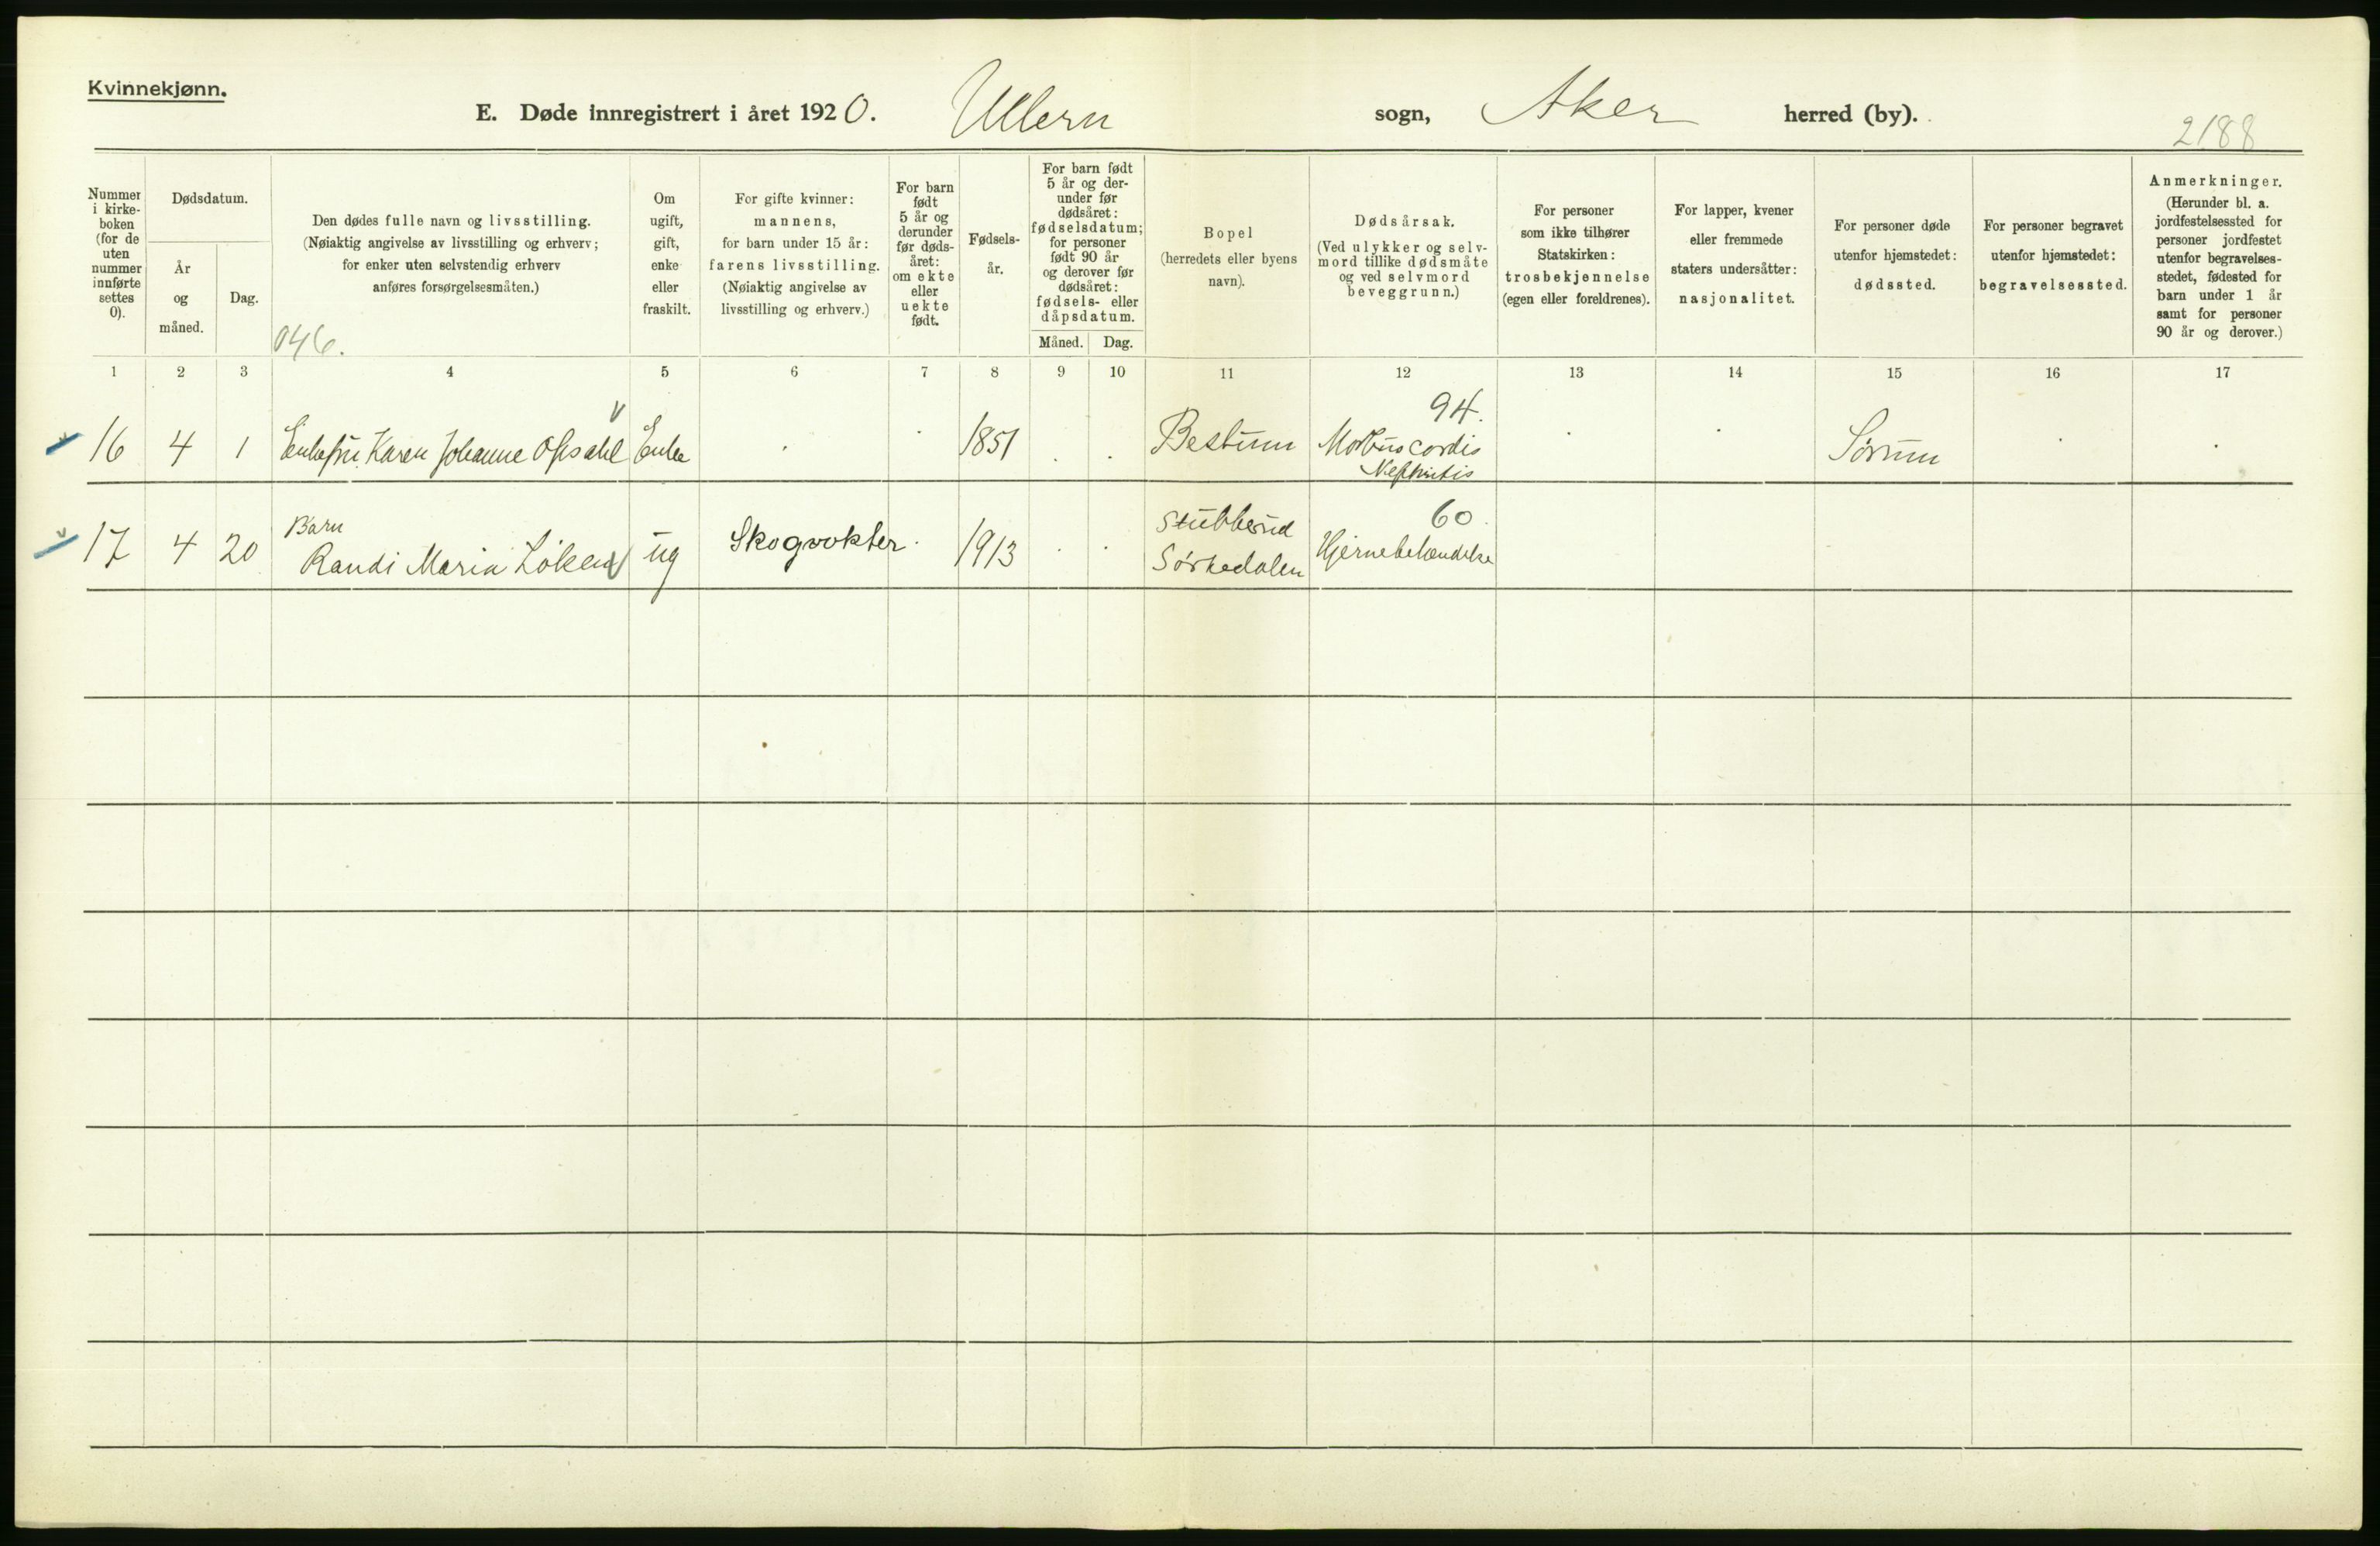 Kvinnekjønn.
E. Døde innregistrert i året 1920. Ullern sogn, Aker herred (by).
2188
Nummer
i kirke-
boken
(for de
uten
nummer
innførte
settes
0).
Dødsdatum.
År
og
måned.
Dag.
Den dødes fulle navn og livsstilling.
(Nøiaktig angivelse av livsstilling og erhverv;
for enker uten selvstendig erhverv
anføres forsørgelsesmåten.)
046.
Om
ugift,
gift,
enke
eller
fraskilt.
For gifte kvinner:
mannens,
for barn under 15 år:
farens livsstilling.
(Nøiaktig angivelse av
livsstilling og erhverv.)
For barn
født
5 år og
derunder
før døds-
året:
om ekte
eller
uekte
født.
Fødsels-
år.
For barn født
5 år og der-
under før
dødsåret:
fødselsdatum;
for personer
født 90 år
og derover før
dødsåret:
fødsels- eller
dåpsdatum.
Måned. Dag.
Bopel
(herredets eller byens
navn).
Dødsårsak.
(Ved ulykker og selv-
mord tillike dødsmåte
og ved selvmord
beveggrunn.)
For personer
som ikke tilhører
Statskirken:
trosbekjennelse
(egen eller foreldrenes).
For lapper, kvener
eller fremmede
staters undersåtter:
nasjonalitet.
For personer døde
utenfor hjemstedet:
dødssted.
For personer begravet
utenfor hjemstedet:
begravelsessted.
Anmerkninger.
(Herunder bl. a.
jordfestelsessted for
personer jordfestet
utenfor begravelses-
stedet, fødested for
barn under 1 år
samt for personer
90 år og derover.)
1 2 3 4 5 6 7 8 9 10 11 12 13 14 15 16 17
94.
16 4 1 Enkefru Karen Johanne Opsahl Enke 1851 Bestum Morbus cordis Sørum
Nephritis
Barn Stubberud 60.
17 4 20 Randi Maria Löken ug Skogvokter 1913 Sörkedalen Hjernebetændelse